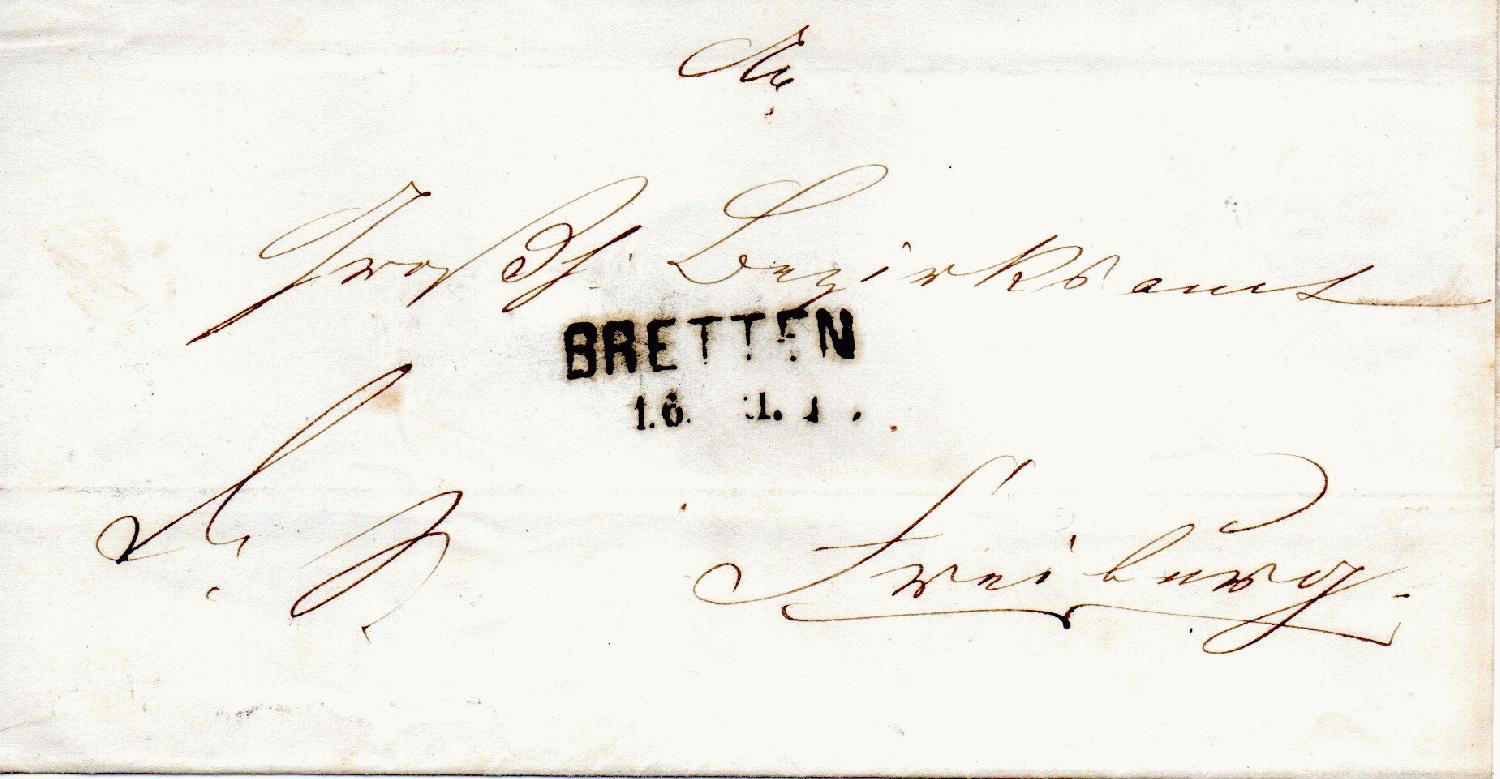 An
Großh. Bezirksamt
BRETTEN
16.
D. S.
Freiburg.